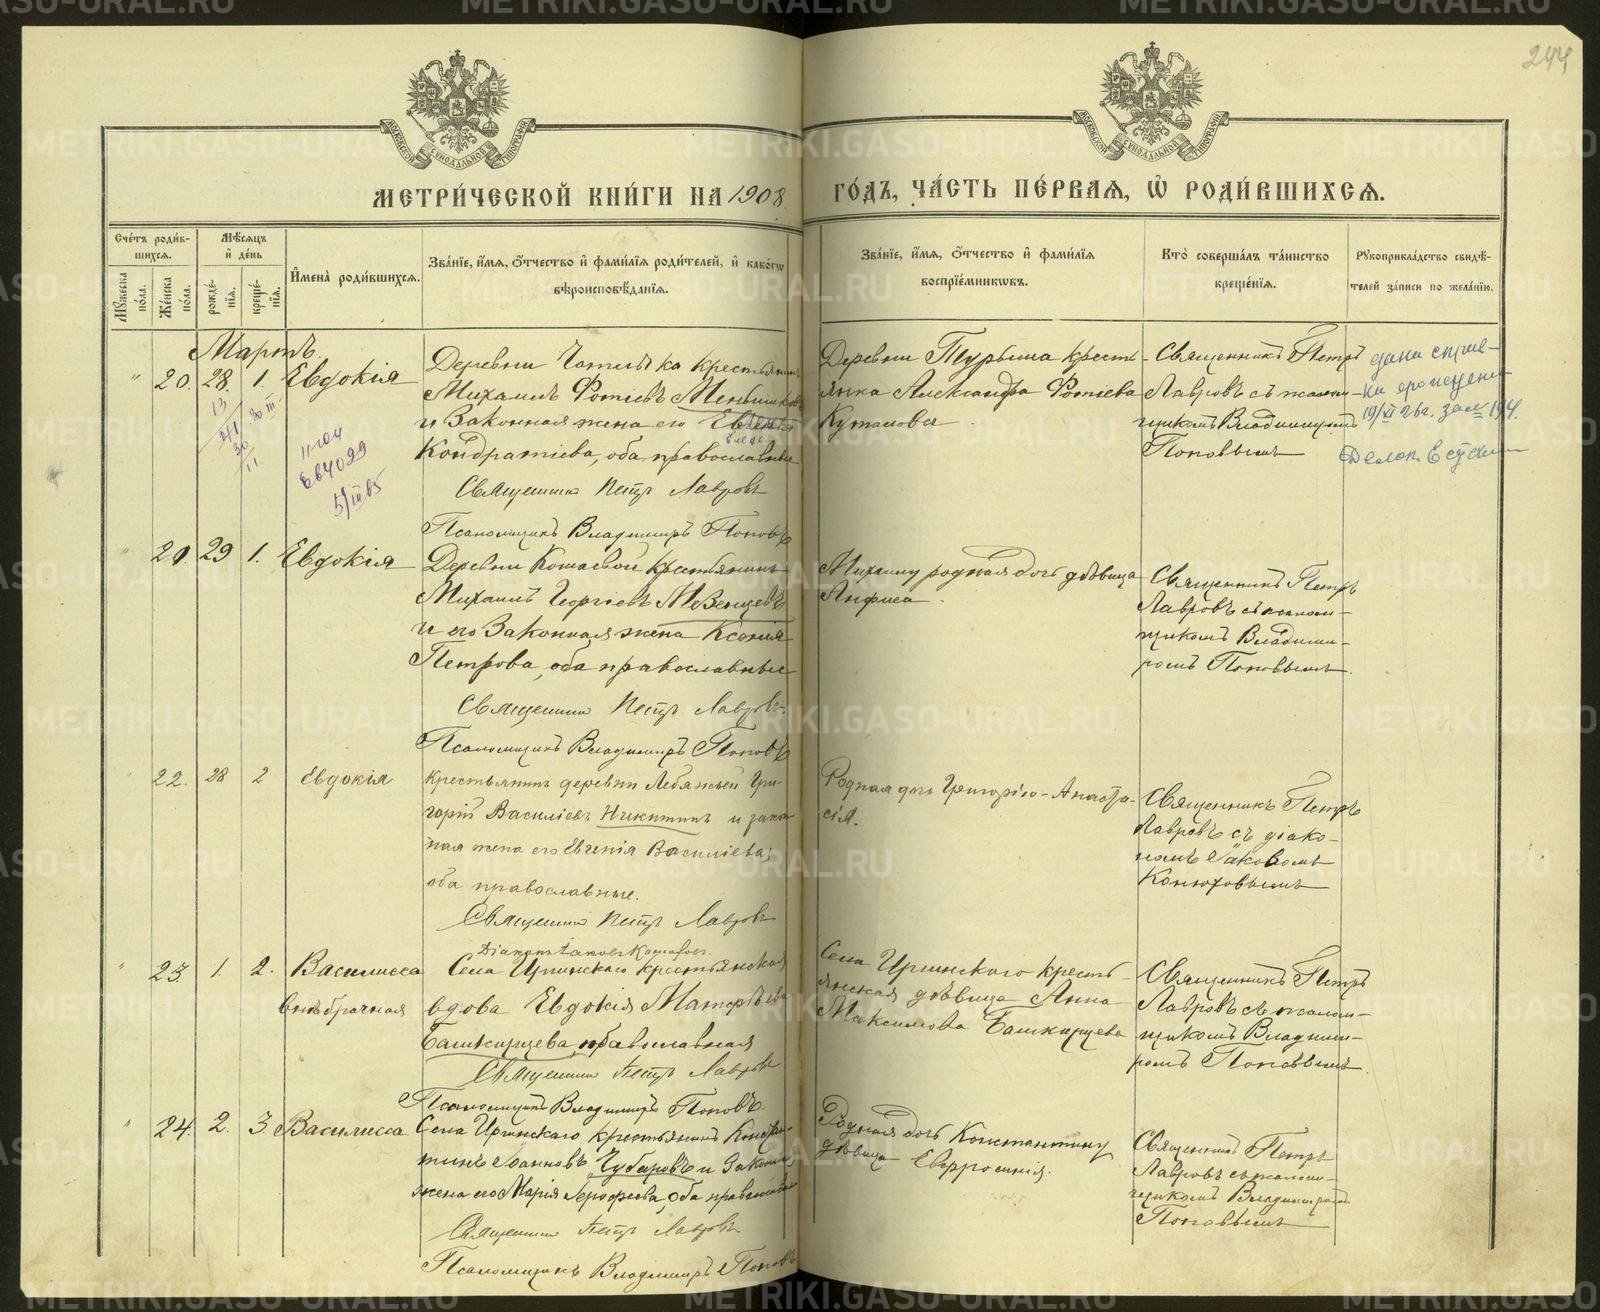 244
МЕТРИ́ЧЕСКОЙ КНИ́ГИ НА 1908 ГО́ДЪ, ЧА́СТЬ ПЕ́РВАЯ, Ѿ РОДИ́ВШИХСЯ.
Сче́тъ роди́вшихся.
Мꙋ́жеска по́ла.
Же́нска по́ла.
Мѣ́сяцъ и де́нь
рожде́нїя.
креще́нїя.
И҆мена̀ роди́вшихся.
Зва́нїе, и҆́мя, ѻ҆́тчество и҆ фами́лїя роди́телей, и҆ како́гѡ
вѣроисповѣ́данїя.
Зва́нїе, и҆́мя, ѻ҆́тчество и҆ фами́лїя
воспрїе́мникѡвъ.
Кто̀ соверша́лъ та́инство
креще́нїя.
Рꙋкоприкла́дство свидѣ́-
телей за́писи по жела́нїю.
Мартъ.
20. 28. 1. Евдокія
Михаилъ Фотіевъ Меньшиков
и Законная жена его
Кондратіева, оба православные
Священник Петръ Лавровъ
Псаломщикъ Владимиръ Поповъ
Деревни Турыша кресть-
янка Александра Фотіева
Священникъ Петръ
Лавровъ с псалом-
щикомъ Владимиром
Поповымъ
дана справ-
ка о рожден
21. 29 1. Евдокія
Деревни Кошаевой Крестьянинъ
Михаилъ Георгіевъ
и его Законная жена Ксенія
Петрова, оба православные
Священник Петръ Лавровъ
Псаломщикъ Владимиръ Поповъ
Михаилу родная дочь дѣвица
Анфиса.
Священникъ Петръ
Лавровъ съ псалом-
щикомъ Владими-
ромъ Поповымъ.
22. 28 2 Евдокія
Крестьянинъ деревни Лебяжьей Гри-
горій Василіевъ Никитинъ и закон
ная жена его Евгенія Василіева;
оба православные.
Священник Петръ Лавровъ
Родная дочь Григорію - Анаста-
сія.
Священникъ Петръ
Лавровъ съ діако-
номъ Іаковомъ
Конюховымъ
23. 1. 2. Василисса
внѣбрачная
Села Иргинскаго Крестьянская
вдова Евдокія Матѳѣева
Башкирцева, православная
Священник Петръ Лавровъ
Псаломщикъ Владимиръ Поповъ.
Села Иргинского кресть-
янская дѣвица Анна
Максимова Башкирцева
Священникъ Петръ
Лавровъ съ псалом-
щикомъ Владими-
ромъ Поповымъ.
24. 2. 3. Василисса
Села Иргинскаго крестьянинъ Констан-
тинъ Іоанновъ Чубаровъ и Законная
жена его Марія Іерофеева, оба православные
Священник Петръ Лавровъ
Псаломщикъ Владимиръ Поповъ
Родная дочь Константину
дѣвица Евфросинія.
Священникъ Петръ
Лавровъ съ псалом-
щикомъ Владимиром
Поповымъ
METRIKI.GASO-URAL.RU